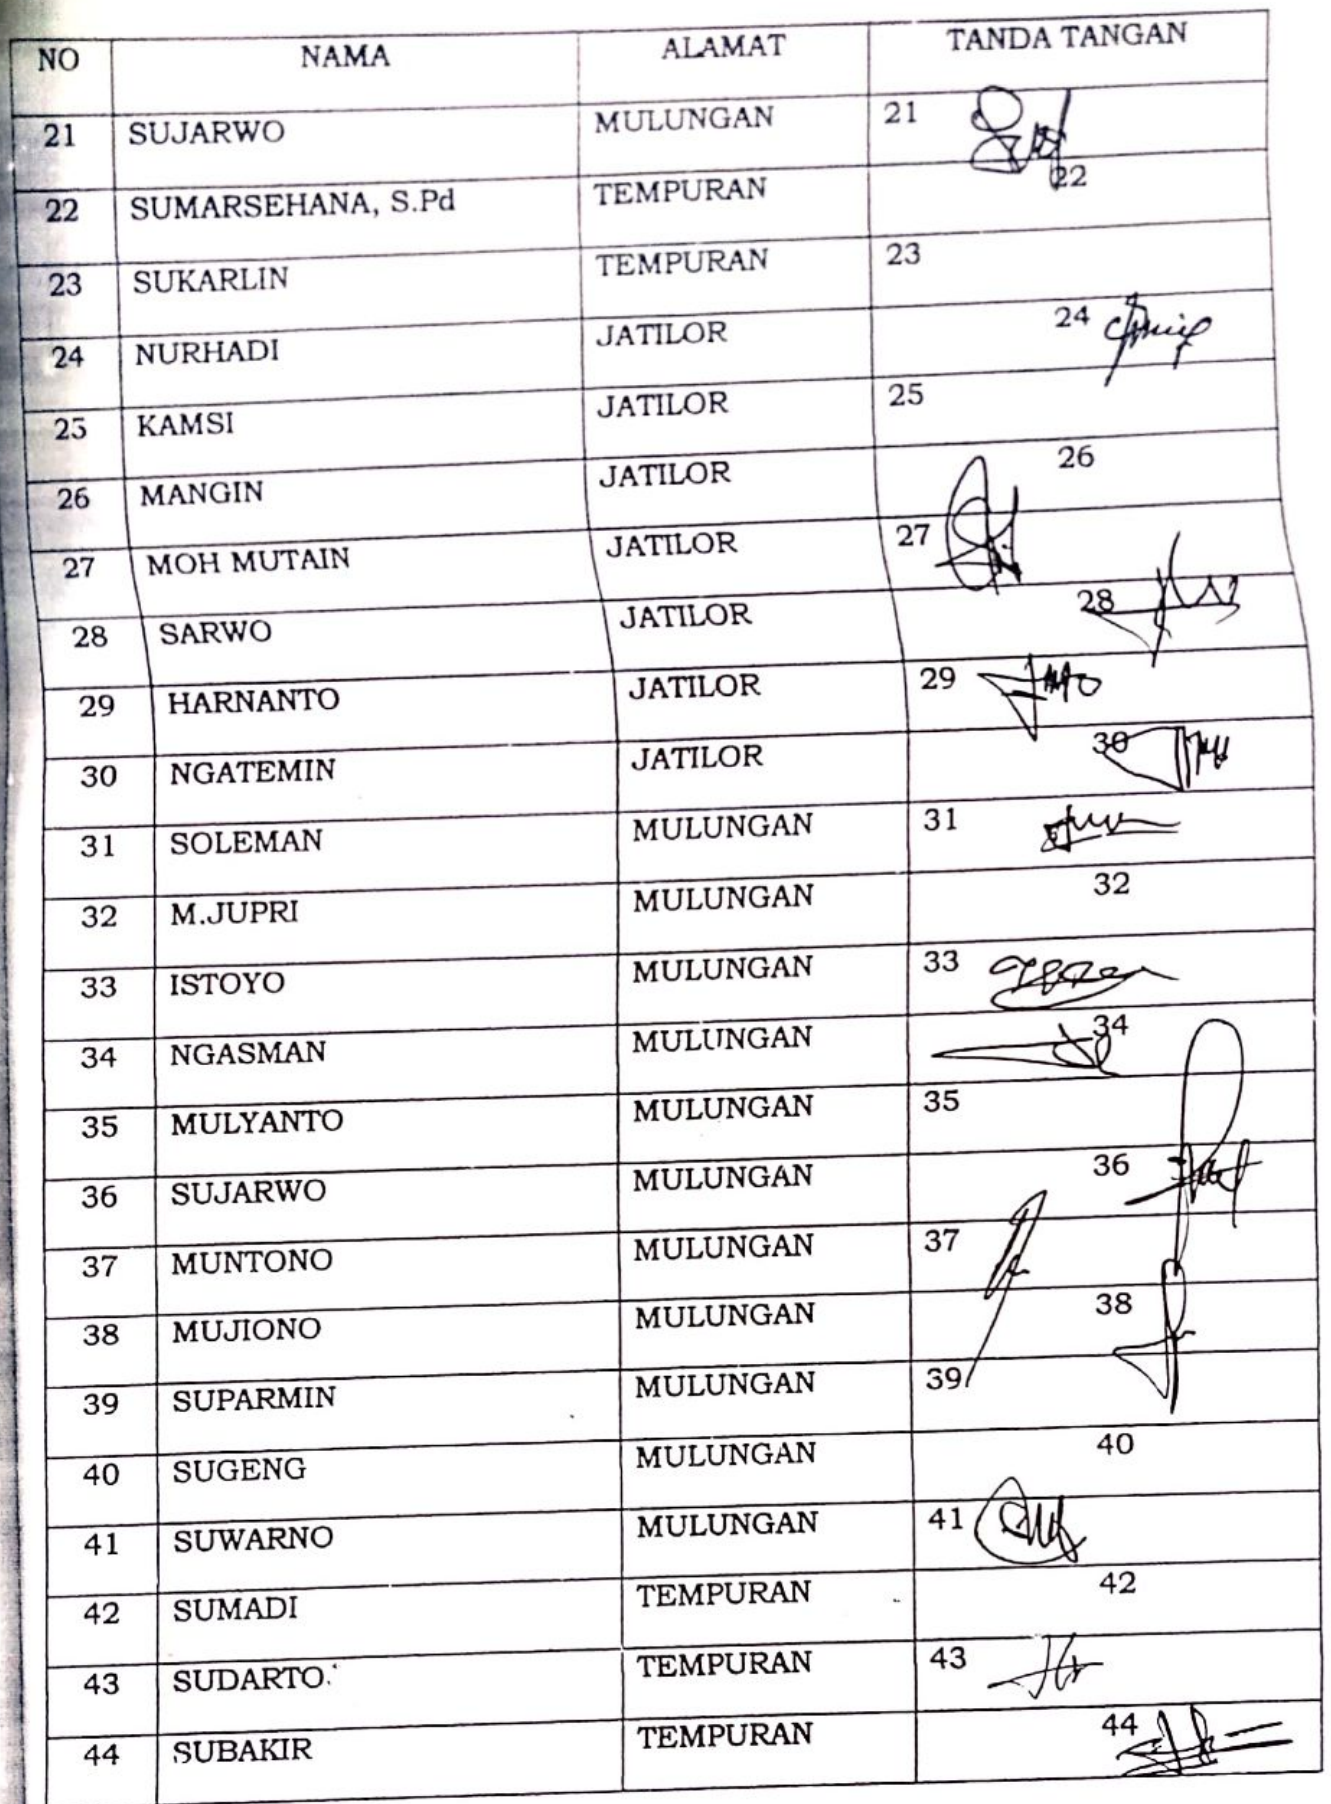 NO NAMA ALAMAT TANDA TANGAN
21 SUJARWO MULUNGAN 21
22 SUMARSEHANA, S.Pd TEMPURAN 22
23 SUKARLIN TEMPURAN 23
24 NURHADI JATILOR 24
25 KAMSI JATILOR 25
26 MANGIN JATILOR 26
27 MOH MUTAIN JATILOR 27
28 SARWO JATILOR 28
29 HARNANTO JATILOR 29
30 NGATEMIN JATILOR 30
31 SOLEMAN MULUNGAN 31
32 M.JUPRI MULUNGAN 32
33 ISTOYO MULUNGAN 33
34 NGASMAN MULUNGAN 34
35 MULYANTO MULUNGAN 35
36 SUJARWO MULUNGAN 36
37 MUNTONO MULUNGAN 37
38 MUJIONO MULUNGAN 38
39 SUPARMIN MULUNGAN 39
40 SUGENG MULUNGAN 40
41 SUWARNO MULUNGAN 41
42 SUMADI TEMPURAN 42
43 SUDARTO. TEMPURAN 43
44 SUBAKIR TEMPURAN 44